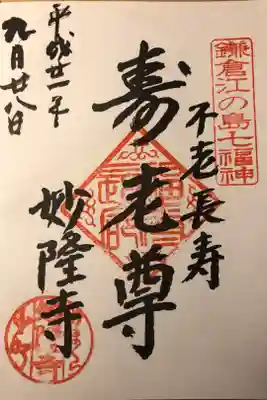 鎌倉江の島七福神
不老長寿
寿老尊
妙隆寺
平成廿一年
九月廿八日